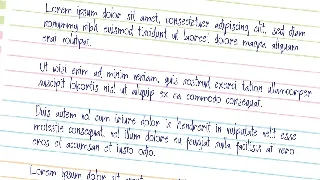 Lorem ipsum dolor sit amet, consectetuer adipiscing elit, sed diam
nonummy nibh euismod tincidunt ut laoreet dolore magna aliquam
erat volutpat.
Ut wisi enim ad minim veniam, quis nostrud exerci tation ullamcorper
suscipit lobortis nisl ut aliquip ex ea commodo consequat.
Duis autem vel eum iriure dolor in hendrerit in vulputate velit esse
molestie consequat, vel illum dolore eu feugiat nulla facilisis at vero
eros et accumsan et iusto odio.
Lorem ipsum dolor sit